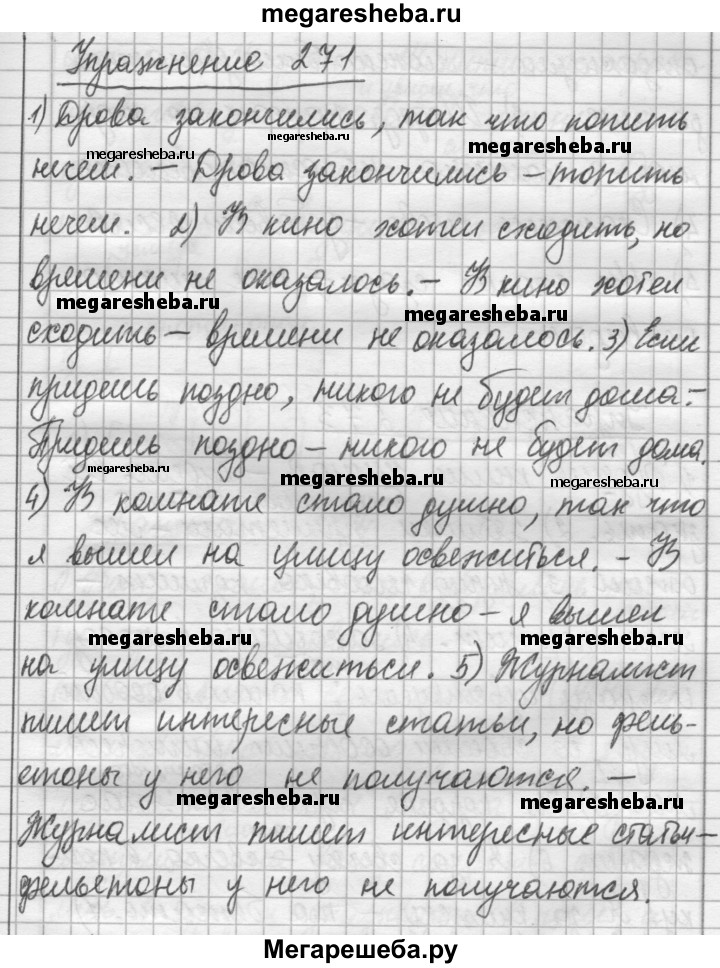 megaresheba.ru
Упражнение 271
1) Дрова закончились, так что топить
megaresheba.ru
megaresheba.ru
megaresheba.ru
нечем. – Дрова закончились – топить
нечем. 2) В кино хотел сходить, но
времени не оказалось. – В кино хотел
megaresheba.ru
megaresheba.ru
сходить – времени не оказалось. 3) Если
придёшь поздно, никого не будет дома. –
Придёшь поздно – никого не будет дома.
megaresheba.ru
megaresheba.ru
megaresheba.ru
4) В комнате стало душно, так что
я вышел на улицу освежиться. – В
комнате стало душно – я вышел
megaresheba.ru
megaresheba.ru
на улицу освежиться. 5) Журналист
пишет интересные статьи, но фель-
етоны у него не получаются. –
megaresheba.ru
megaresheba.ru
Журналист пишет интересные статьи –
фельетоны у него не получаются.
megaresheba.ru
megaresheba.ru
Мегарешеба.ру